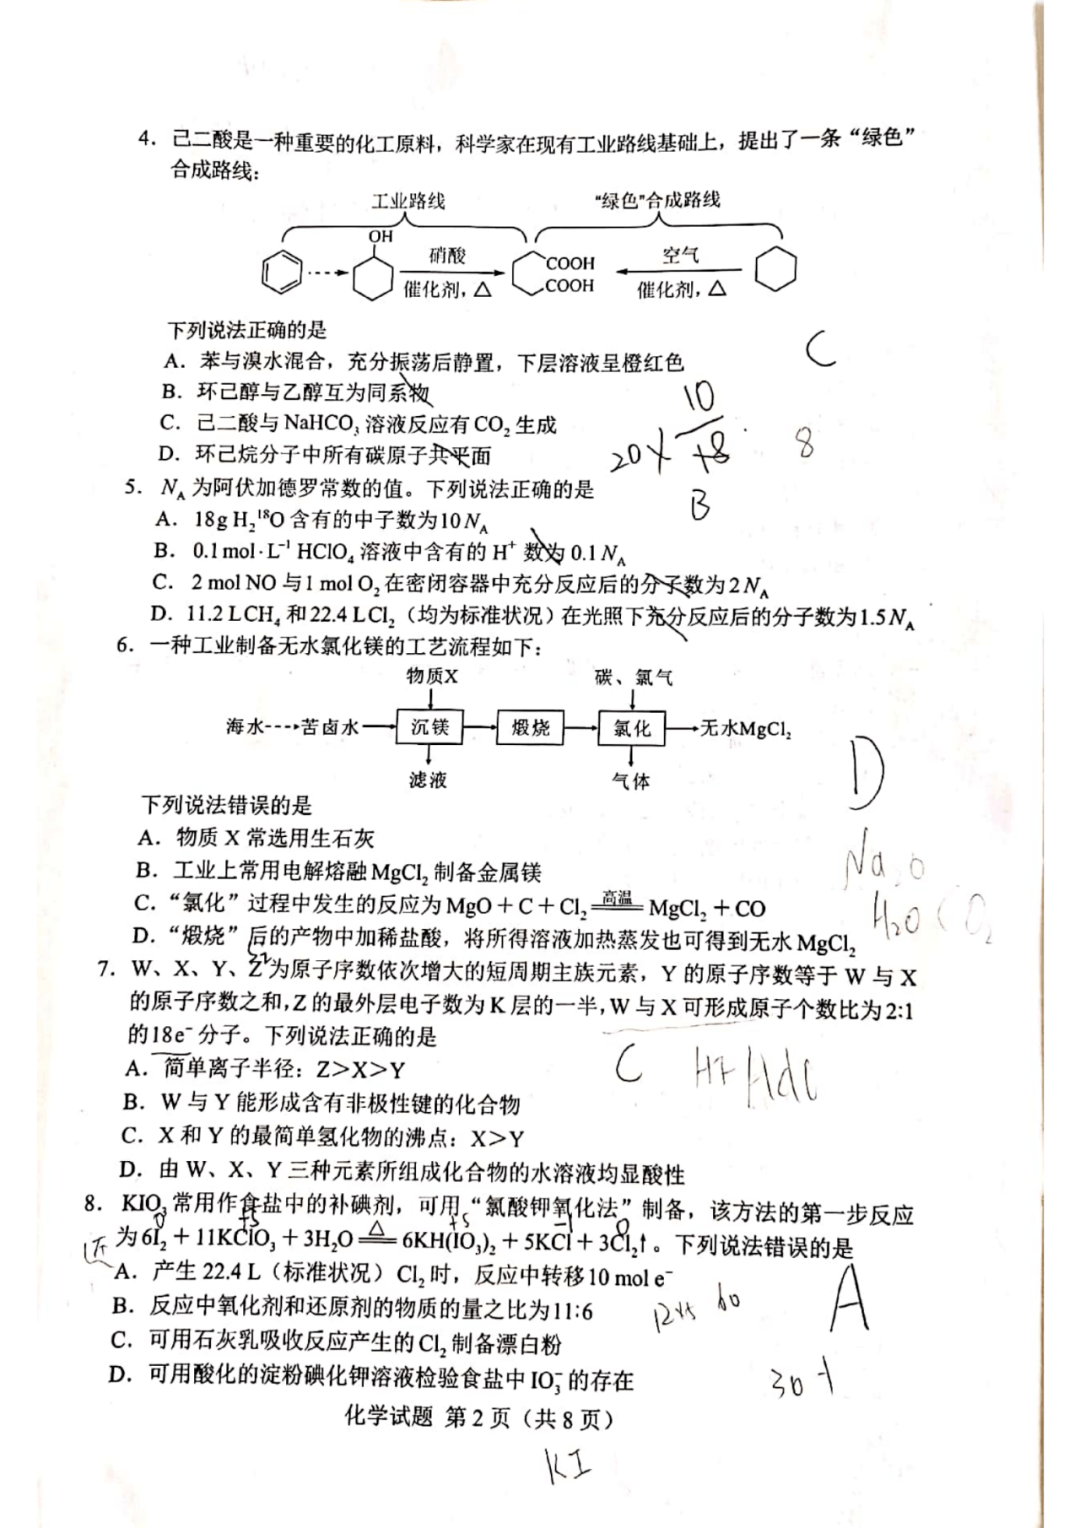 4. 己二酸是一种重要的化工原料，科学家在现有工业路线基础上，提出了一条“绿色”
合成路线：
工业路线 “绿色”合成路线
OH
硝酸 COOH 空气
催化剂，△ COOH 催化剂，△
下列说法正确的是
C
A. 苯与溴水混合，充分振荡后静置，下层溶液呈橙红色
B. 环己醇与乙醇互为同系物
C. 己二酸与 NaHCO₃ 溶液反应有 CO₂ 生成
D. 环己烷分子中所有碳原子共平面
20× 10/18 8
5. N_A 为阿伏加德罗常数的值。下列说法正确的是
B
A. 18g H₂¹⁸O 含有的中子数为10 N_A
B. 0.1 mol·L⁻¹ HClO₄ 溶液中含有的 H⁺ 数为 0.1 N_A
C. 2 mol NO 与1 mol O₂ 在密闭容器中充分反应后的分子数为2 N_A
D. 11.2 L CH₄ 和 22.4 L Cl₂（均为标准状况）在光照下充分反应后的分子数为1.5 N_A
6. 一种工业制备无水氯化镁的工艺流程如下：
物质X 碳、氯气
海水 苦卤水 沉镁 煅烧 氯化 无水MgCl₂
滤液 气体
D
下列说法错误的是
A. 物质 X 常选用生石灰
B. 工业上常用电解熔融 MgCl₂ 制备金属镁
Na₂O
C. “氯化”过程中发生的反应为 MgO + C + Cl₂ 高温 MgCl₂ + CO
H₂O CO₂
D. “煅烧”后的产物中加稀盐酸，将所得溶液加热蒸发也可得到无水 MgCl₂
7. W、X、Y、Z 为原子序数依次增大的短周期主族元素，Y 的原子序数等于 W 与 X
的原子序数之和，Z 的最外层电子数为 K 层的一半，W 与 X 可形成原子个数比为 2:1
的18e⁻ 分子。下列说法正确的是
C
A. 简单离子半径：Z>X>Y
B. W 与 Y 能形成含有非极性键的化合物
C. X 和 Y 的最简单氢化物的沸点：X>Y
D. 由 W、X、Y 三种元素所组成化合物的水溶液均显酸性
8. KIO₃ 常用作食盐中的补碘剂，可用“氯酸钾氧化法”制备，该方法的第一步反应
0 +5 +5 -1 0
为 6I₂ + 11KClO₃ + 3H₂O △ 6KH(IO₃)₂ + 5KCl + 3Cl₂↑。下列说法错误的是
A. 产生 22.4 L（标准状况）Cl₂ 时，反应中转移 10 mol e⁻
B. 反应中氧化剂和还原剂的物质的量之比为11:6
12×5 60
A
C. 可用石灰乳吸收反应产生的 Cl₂ 制备漂白粉
D. 可用酸化的淀粉碘化钾溶液检验食盐中 IO₃⁻ 的存在
化学试题 第 2 页（共 8 页）
KI